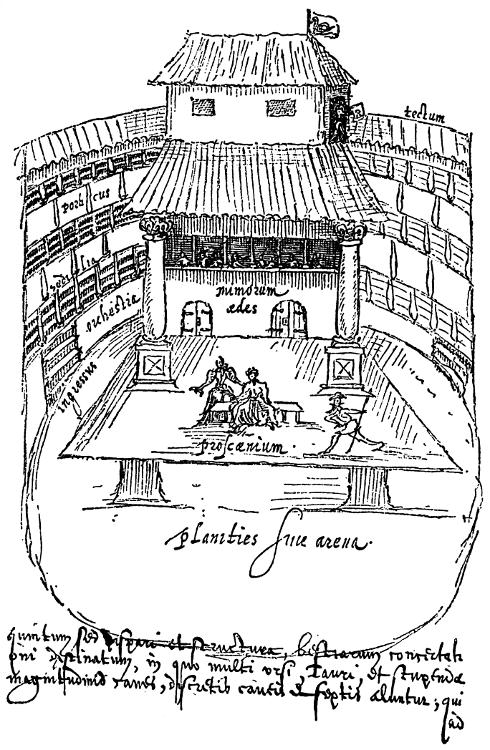 tectum
porticus
sedilia
orchestra
mimorum
ædes
ingressus
proscænium
planities siue arena.
quintum sed dispari et structura, bestiarum concertati
oni destinatum, in quo multi vrsi, Tauri, et stupendæ
magnitudinis canes, discretis caueis & septis aluntur, qui
ad